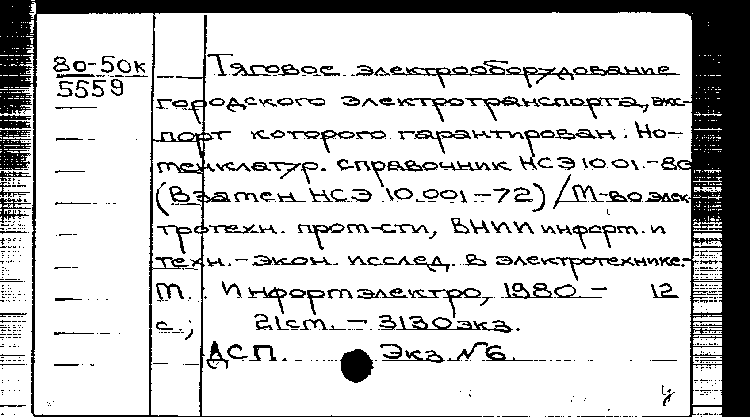 80-50к
5559
Тяговое электрооборудование
городского электротранспорта, экс-
порт которого гарантирован. Но-
менклатур. справочник НСЭ 10.01.-80
(Взамен НСЭ 10.001-72) / М-во элек-
тротехн. пром-сти, ВНИИ информ. и
техн.-экон. исслед. в электротехнике.-
М.: Информэлектро, 1980 - 12
с.; 21см. - 3130экз.
ДСП. Экз. №6.